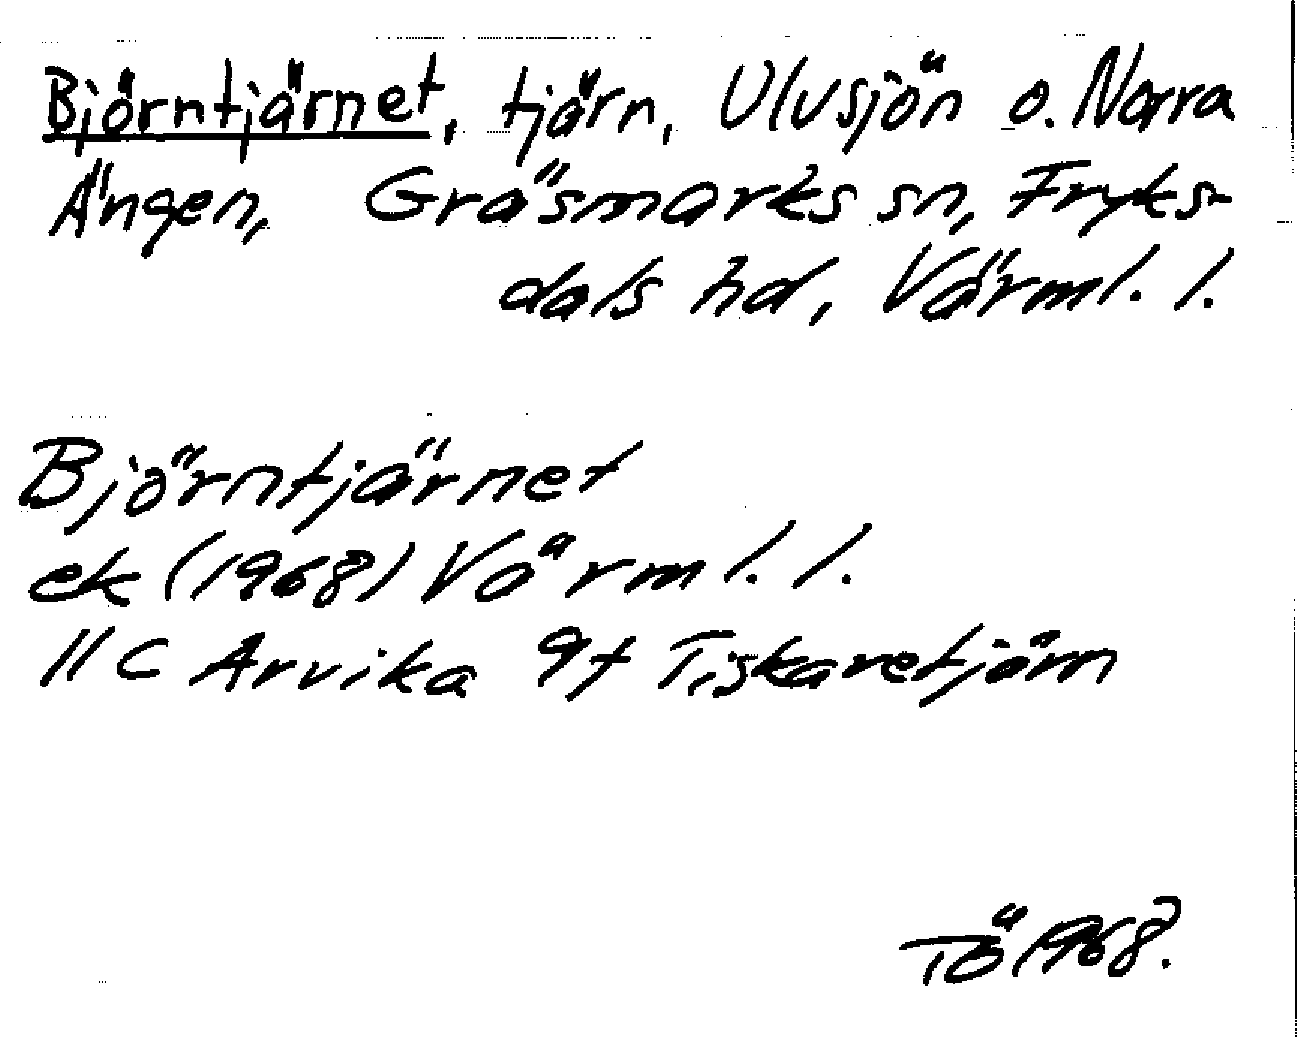 Björntjärnet, tjärn, Ulvsjön o. Norra
Ängen, Gräsmarks sn, Fryks-
dals hd, Värml. l.
Björntjärnet
ek (1968) Värml. l.
11C Arvika 9f Tiskaretjärn
TÖ 1968.